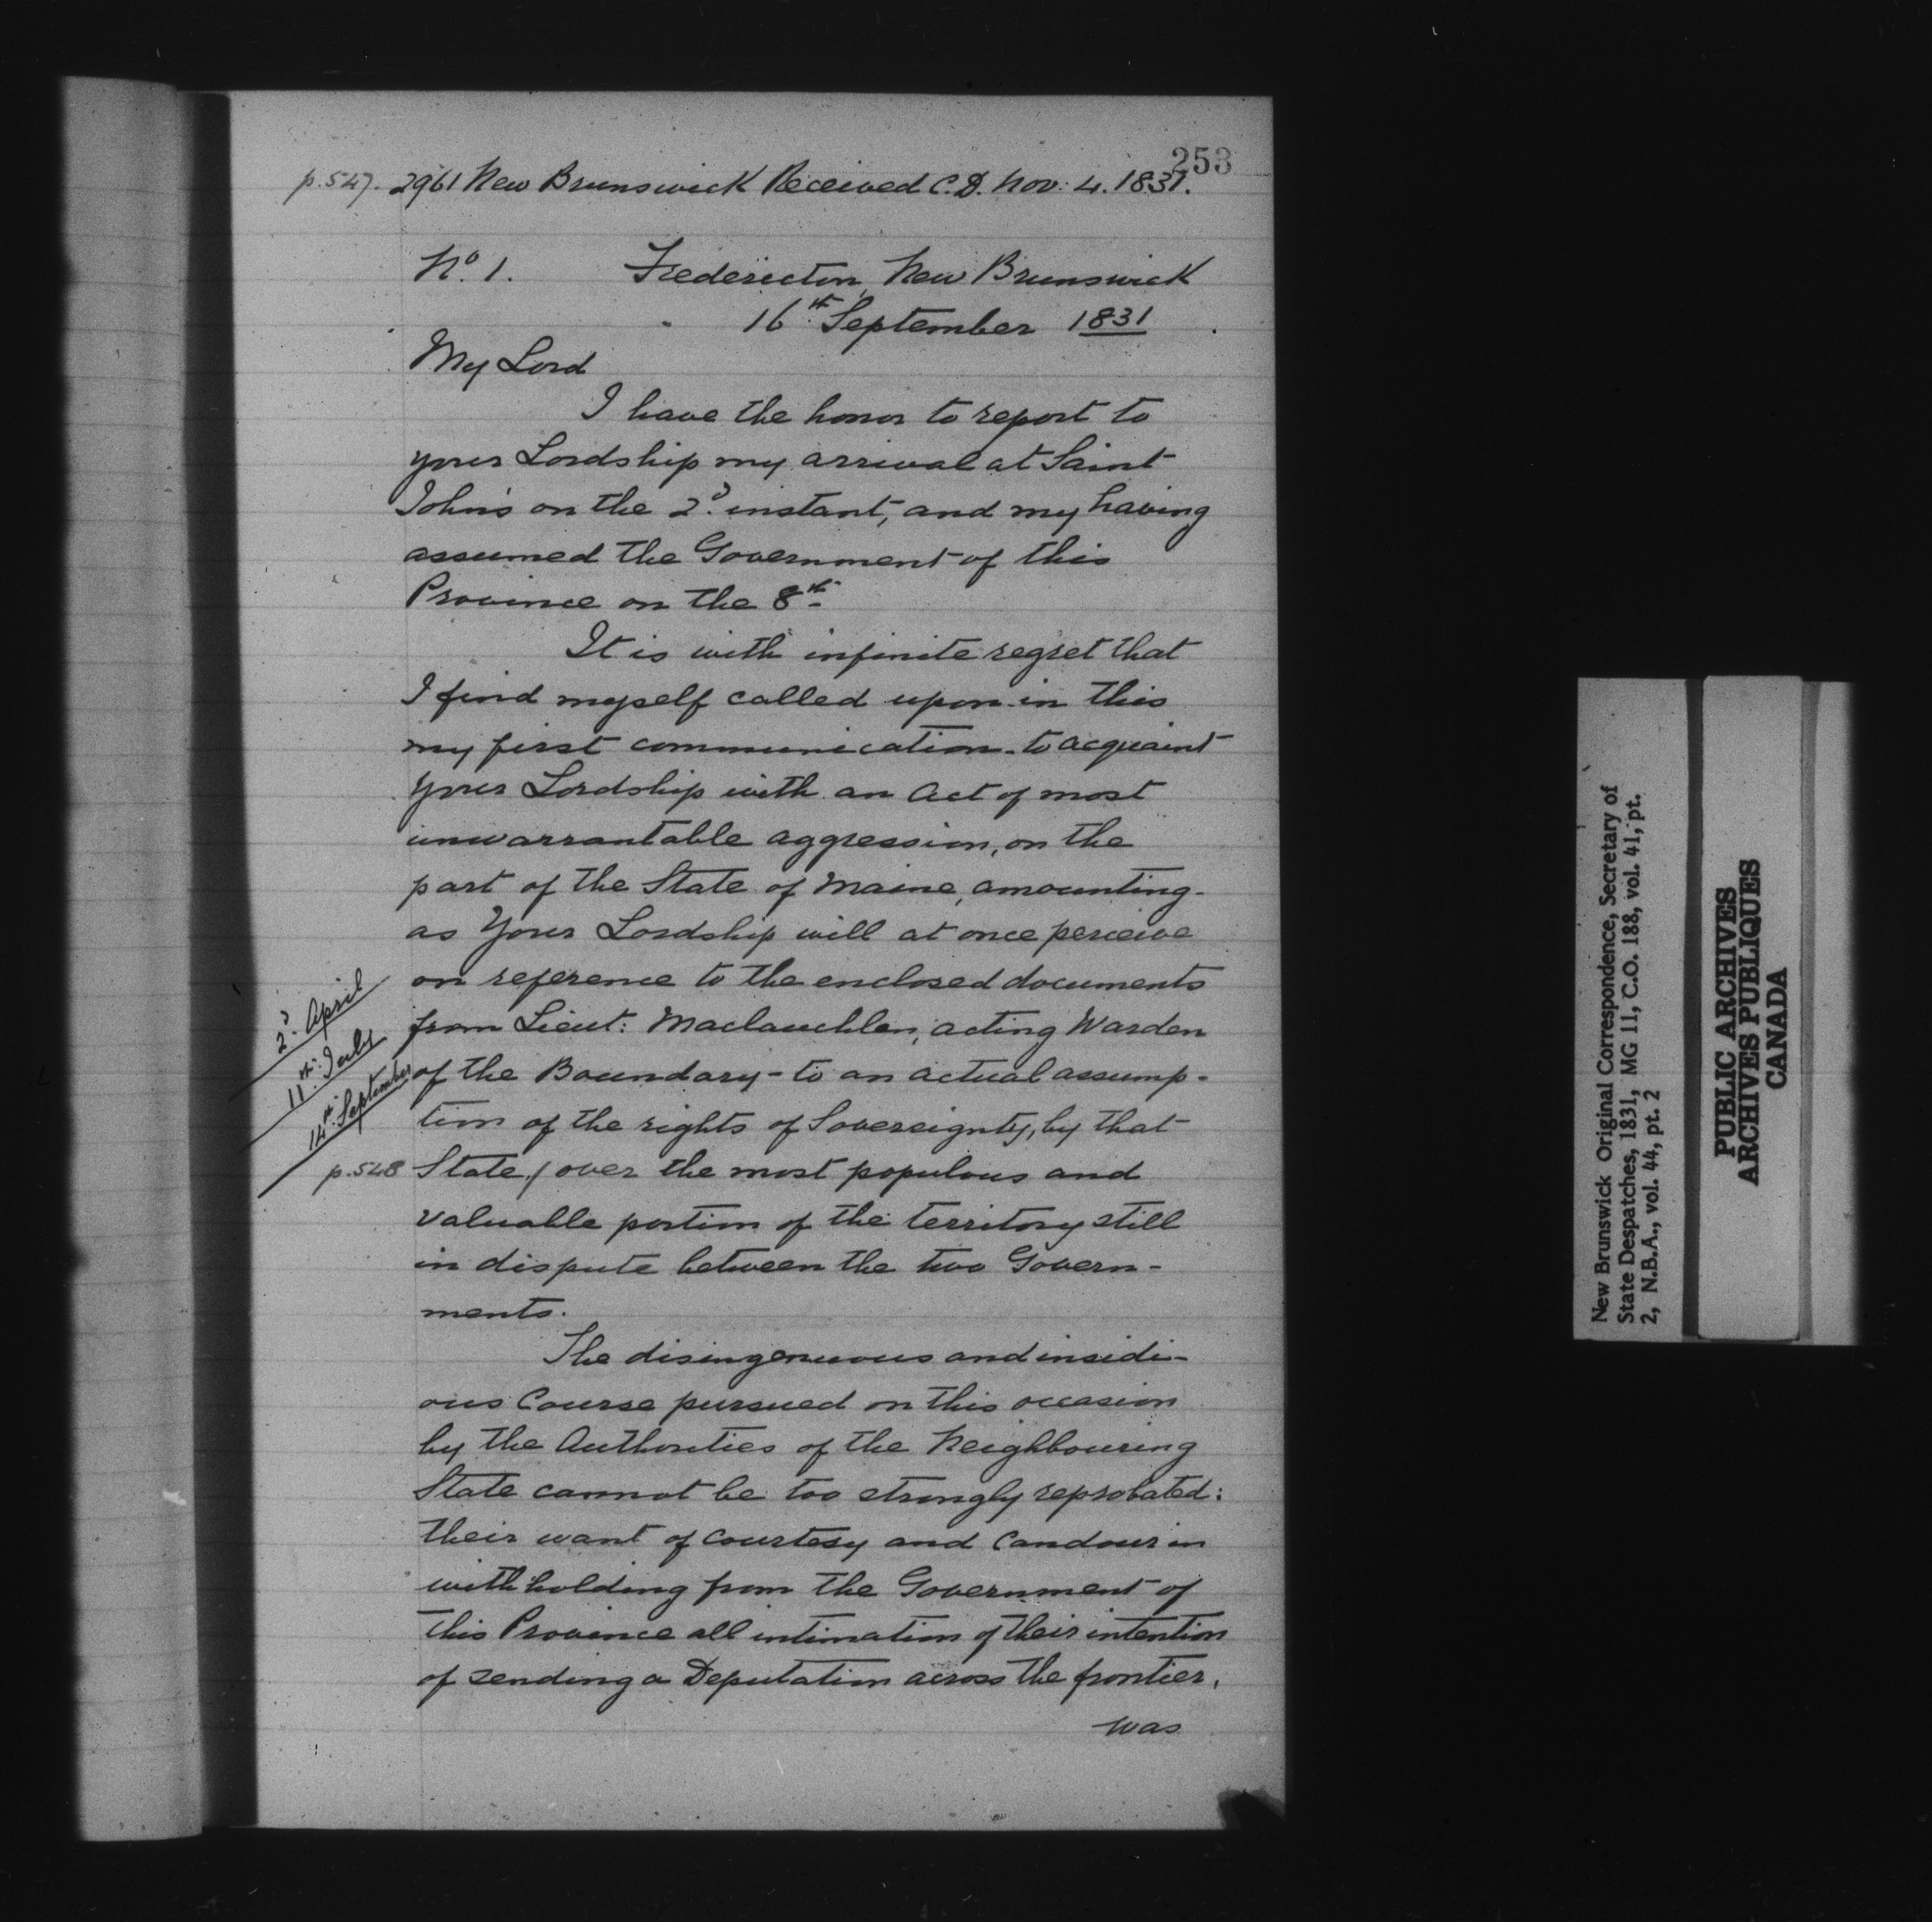 253
p.547. 2961 New Brunswick Received C.D. Nov: 4. 1831.
No. 1. Fredericton, New Brunswick
16th September 1831
My Lord
I have the honor to report to
your Lordship my arrival at Saint
John's on the 2d. instant, and my having
assumed the Government of this
Province on the 8th.
It is with infinite regret that
I find myself called upon in this
my first communication to acquaint
Your Lordship with an Act of most
unwarrantable aggression, on the
part of the State of Maine, amounting -
as Your Lordship will at once perceive
on reference to the enclosed documents
2d. April
from Lieut: Maclauchlan, acting Warden
11th. July
of the Boundary - to an actual assump-
14th. September
tion of the rights of Sovereignty, by that
p.548 State, / over the most populous and
valuable portion of the territory still
in dispute between the two Govern-
ments.
The disingenuous and insidi-
ous Course pursued on this occasion
by the Authorities of the Neighbouring
State cannot be too strongly reprobated:
their want of Courtesy and Candour in
withholding from the Government of
this Province all intimation of their intention
of sending a Deputation across the frontier,
was
New Brunswick Original Correspondence, Secretary of
State Despatches, 1831, MG 11, C.O. 188, vol. 41, pt.
2, N.B.A., vol. 44, pt. 2
PUBLIC ARCHIVES
ARCHIVES PUBLIQUES
CANADA